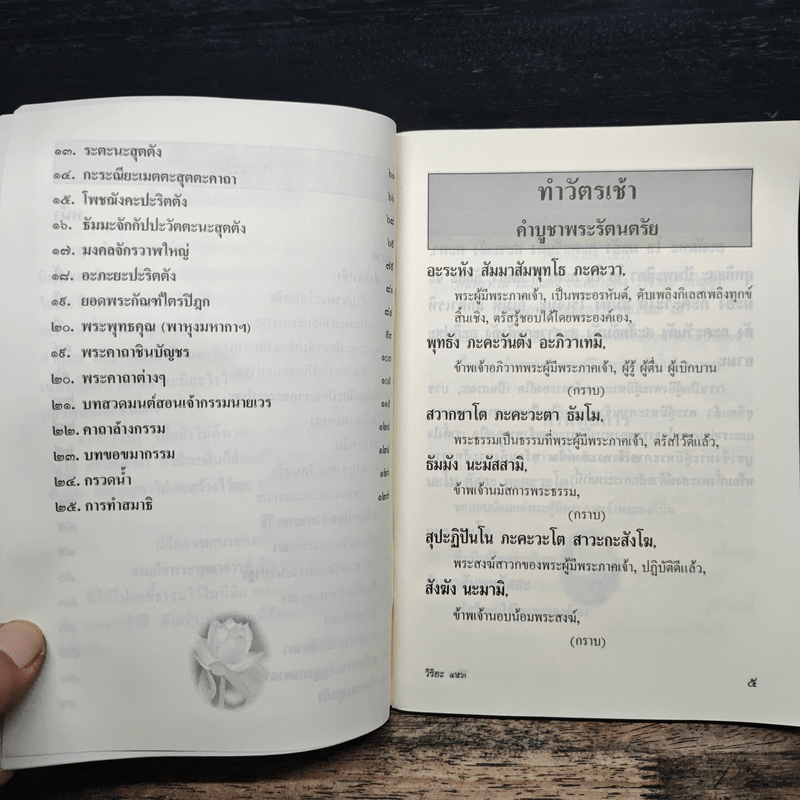 ๑๓. ระตะนะสุตตัง
๑๔. กะระณียะเมตตะสุตตะคาถา ๖๑
๑๕. โพชฌังคะปะริตตัง ๖๖
๑๖. ธัมมะจักกัปปะวัตตะนะสุตตัง ๖๘
๑๗. มงคลจักรวาฬใหญ่ ๖๙
๑๘. อะภะยะปะริตตัง ๗๙
๑๙. ยอดพระกัณฑ์ไตรปิฎก ๘๑
๒๐. พระพุทธคุณ (พาหุงมหากาฯ) ๘๔
๑๙. พระคาถาชินบัญชร ๙๓
๒๐. พระคาถาต่างๆ ๑๐๓
๒๑. บทสวดมนต์สอนเจ้ากรรมนายเวร ๑๐๙
๒๒. คาถาล้างกรรม ๑๑๙
๒๓. บทขอขมากรรม ๑๒๔
๒๔. กรวดน้ำ ๑๒๕
๒๕. การทำสมาธิ ๑๒๗
ทำวัตรเช้า
คำบูชาพระรัตนตรัย
อะระหัง สัมมาสัมพุทโธ ภะคะวา,
พระผู้มีพระภาคเจ้า, เป็นพระอรหันต์, ดับเพลิงกิเลสเพลิงทุกข์
สิ้นเชิง, ตรัสรู้ชอบได้โดยพระองค์เอง,
พุทธัง ภะคะวันตัง อะภิวาเทมิ,
ข้าพเจ้าอภิวาทพระผู้มีพระภาคเจ้า, ผู้รู้ ผู้ตื่น ผู้เบิกบาน
(กราบ)
สวากขาโต ภะคะวะตา ธัมโม,
พระธรรมเป็นธรรมที่พระผู้มีพระภาคเจ้า, ตรัสไว้ดีแล้ว,
ธัมมัง นะมัสสามิ,
ข้าพเจ้านมัสการพระธรรม,
(กราบ)
สุปะฏิปันโน ภะคะวะโต สาวะกะสังโฆ,
พระสงฆ์สาวกของพระผู้มีพระภาคเจ้า, ปฏิบัติดีแล้ว,
สังฆัง นะมามิ,
ข้าพเจ้านอบน้อมพระสงฆ์,
(กราบ)
วิริยะ ๔๕๓
๕